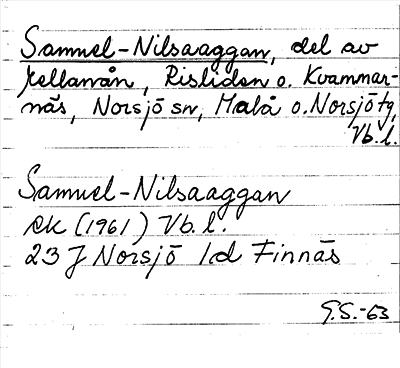 Samuel-Nilsaaggan, del av
Mellanån, Risliden o. Kvammar-
näs, Norsjö sn, Malå o. Norsjö tg,
Vb.l.
Samuel-Nilsaaggan
RK (1961) Vb.l.
23 J Norsjö 1d Finnäs
G.S.-63